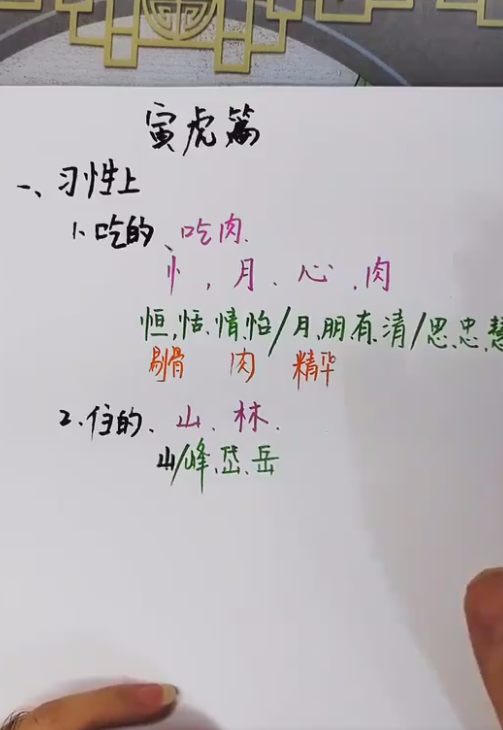 寅虎篇
一、习性上
1、吃的、吃肉.
忄,月、心、肉
恒,恬、情、怡/月、朋、有、清/思、忠、慧
剔骨 肉 精华
2、住的、山、林.
山/峰、岱、岳